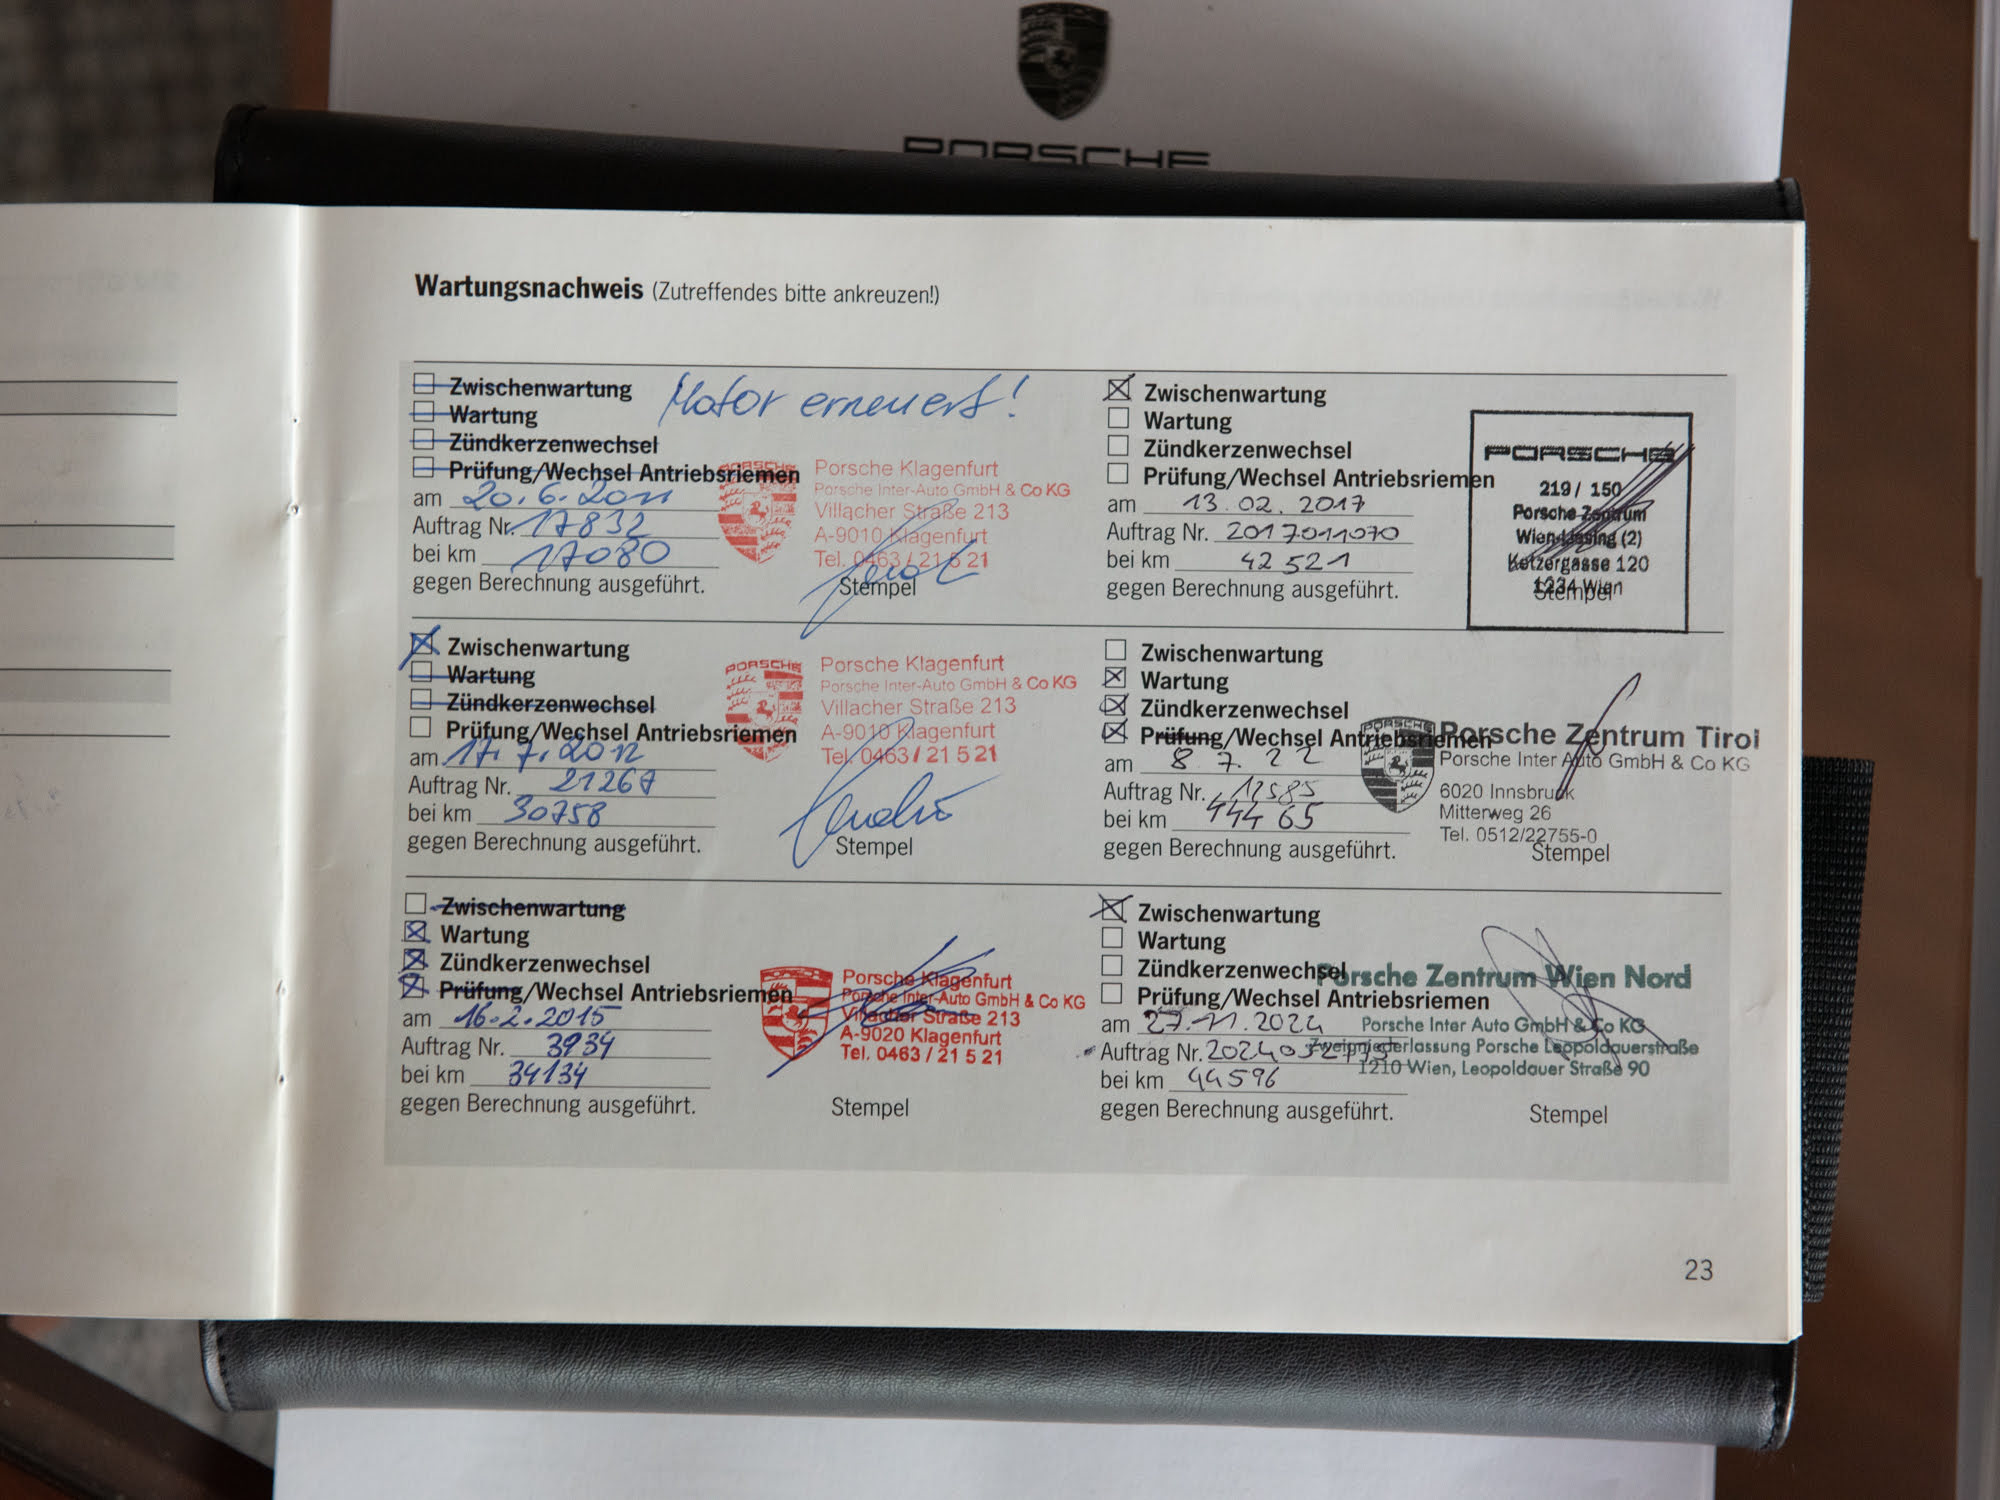 PORSCHE
Wartungsnachweis (Zutreffendes bitte ankreuzen!)
Zwischenwartung Motor erneuert!
Wartung
Zündkerzenwechsel
Prüfung/Wechsel Antriebsriemen
am 20.6.2011
Auftrag Nr. 17832
bei km 17080
gegen Berechnung ausgeführt.
PORSCHE
Porsche Klagenfurt
Porsche Inter-Auto GmbH & Co KG
Villacher Straße 213
A-9010 Klagenfurt
Tel. 0463 / 21 5 21
Stempel
Zwischenwartung
Wartung
Zündkerzenwechsel
Prüfung/Wechsel Antriebsriemen
am 17.7.2012
Auftrag Nr. 21267
bei km 30758
gegen Berechnung ausgeführt.
PORSCHE
Porsche Klagenfurt
Porsche Inter-Auto GmbH & Co KG
Villacher Straße 213
A-9010 Klagenfurt
Tel. 0463 / 21 5 21
Stempel
Zwischenwartung
Wartung
Zündkerzenwechsel
Prüfung/Wechsel Antriebsriemen
am 16.2.2015
Auftrag Nr. 3934
bei km 34134
gegen Berechnung ausgeführt.
Porsche Klagenfurt
Porsche Inter-Auto GmbH & Co KG
Villacher Straße 213
A-9020 Klagenfurt
Tel. 0463 / 21 5 21
Stempel
Zwischenwartung
Wartung
Zündkerzenwechsel
Prüfung/Wechsel Antriebsriemen
am 13.02.2017
Auftrag Nr. 2017011070
bei km 42521
gegen Berechnung ausgeführt.
PORSCHE
219 / 150
Porsche Zentrum
Wien-Liesing (2)
Ketzergasse 120
1234 Wien
Stempel
Zwischenwartung
Wartung
Zündkerzenwechsel
Prüfung/Wechsel Antriebsriemen
am 8.7.22
Auftrag Nr. 12585
bei km 44465
gegen Berechnung ausgeführt.
PORSCHE
Porsche Zentrum Tirol
Porsche Inter Auto GmbH & Co KG
6020 Innsbruck
Mitterweg 26
Tel. 0512/22755-0
Stempel
Zwischenwartung
Wartung
Zündkerzenwechsel
Prüfung/Wechsel Antriebsriemen
am 27.11.2024
Auftrag Nr.
bei km 44596
gegen Berechnung ausgeführt.
Porsche Zentrum Wien Nord
Porsche Inter Auto GmbH & Co KG
Zweigniederlassung Porsche Leopoldauerstraße
1210 Wien, Leopoldauer Straße 90
Stempel
23